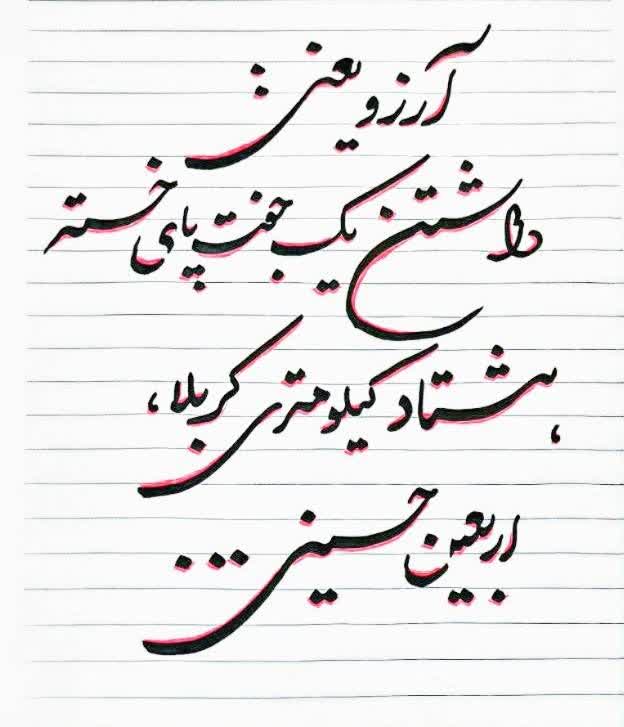 آرزو یعنی :
داشتن یک جفت پای خسته
، هشتاد کیلومتری کربلا ،
اربعین حسینی ...